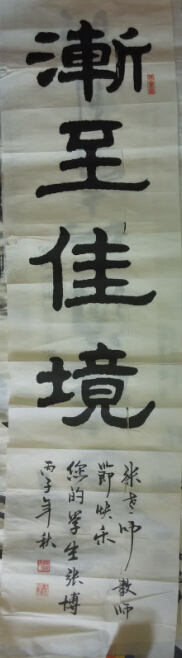 漸至佳境
张老师 教师
節快乐
您的学生张博
丙子年秋